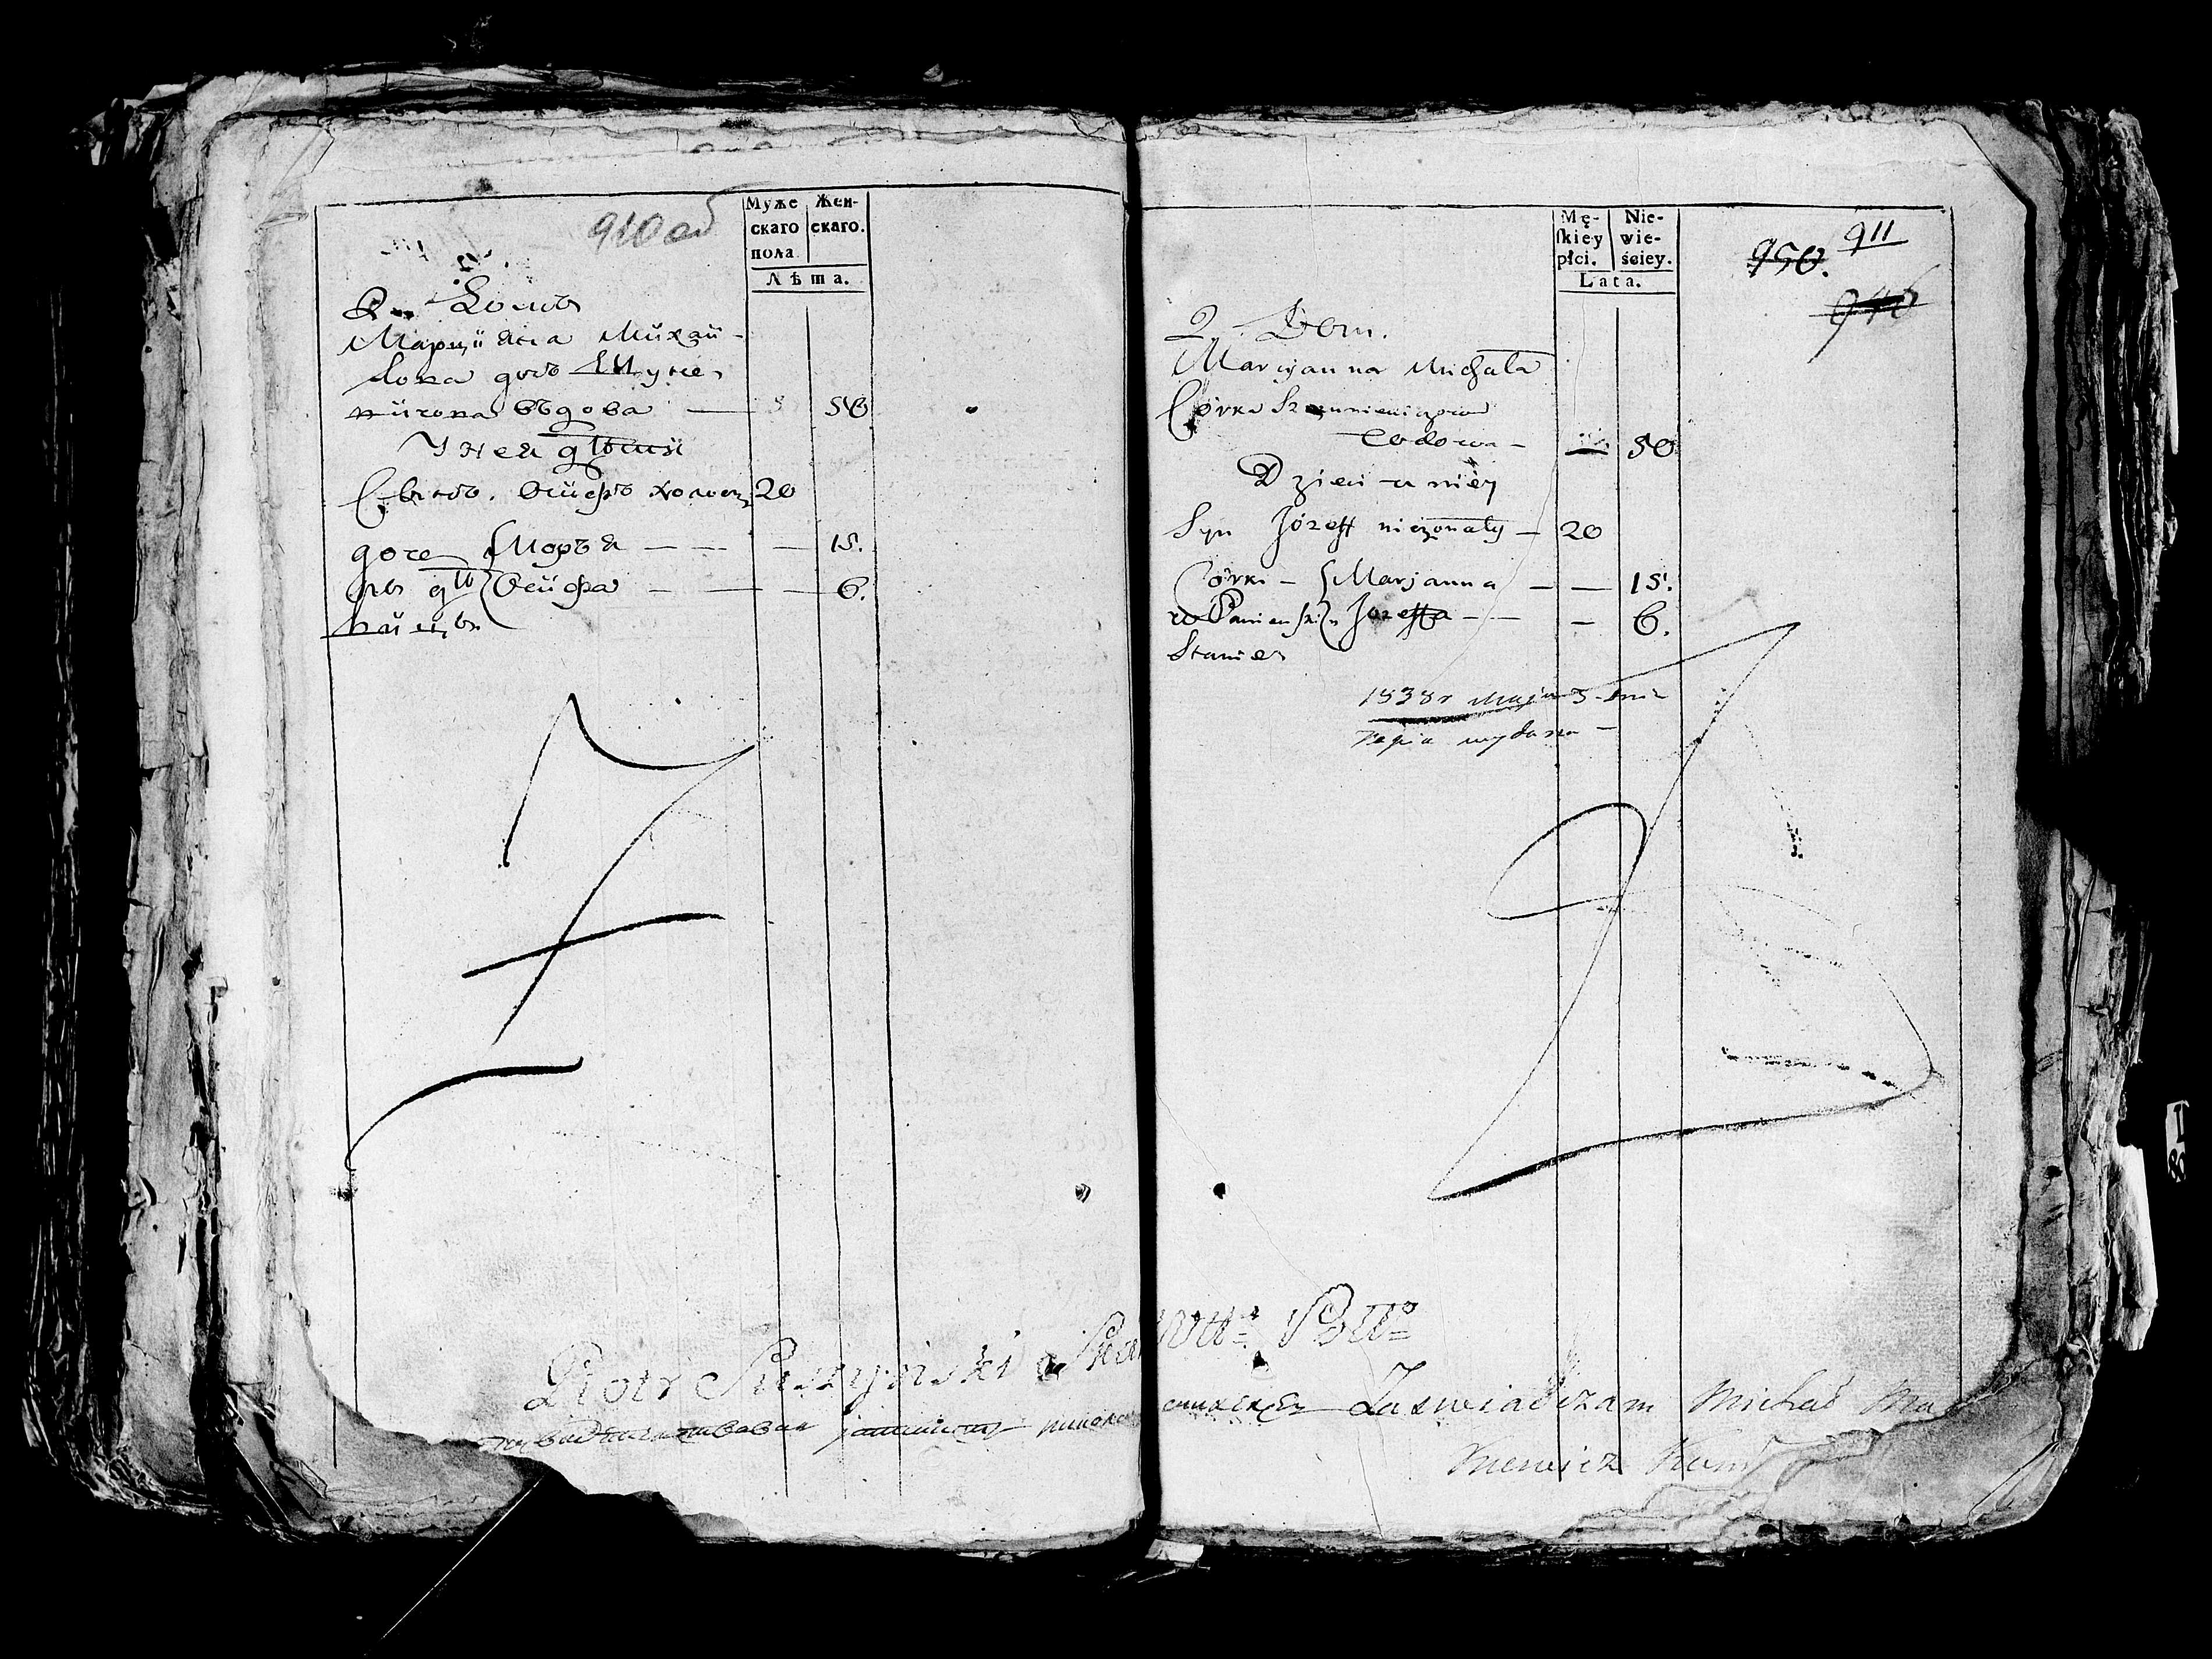 910 об
Муже
скаго
пола
Жен-
скаго.
Лѣта.
2 Домъ
Марціяна Михай-
лова дочь
вдова — 50
У Нея дѣти
Сынъ. Осифъ холост 20
доче { Марья — — — 15.
ри дѣ { Осифа — — — 6.
вицы
Mę-
ſkiey
płci.
Nie-
wie-
ściey.
Lata.
950.
911
946
2 Dom.
Marcyanna Michała
Córka
Wdowa — 50
Dzieci u niéy
Syn Józeff nieżonaty — 20
Córki — { Marjanna — — 15.
w Panieńskim { Jozeffa — — 6.
Stanie
1838r Maja 5 dnia
Kopia wydana —
Piotr Suszyński
Zaswiadczam Michał Ma